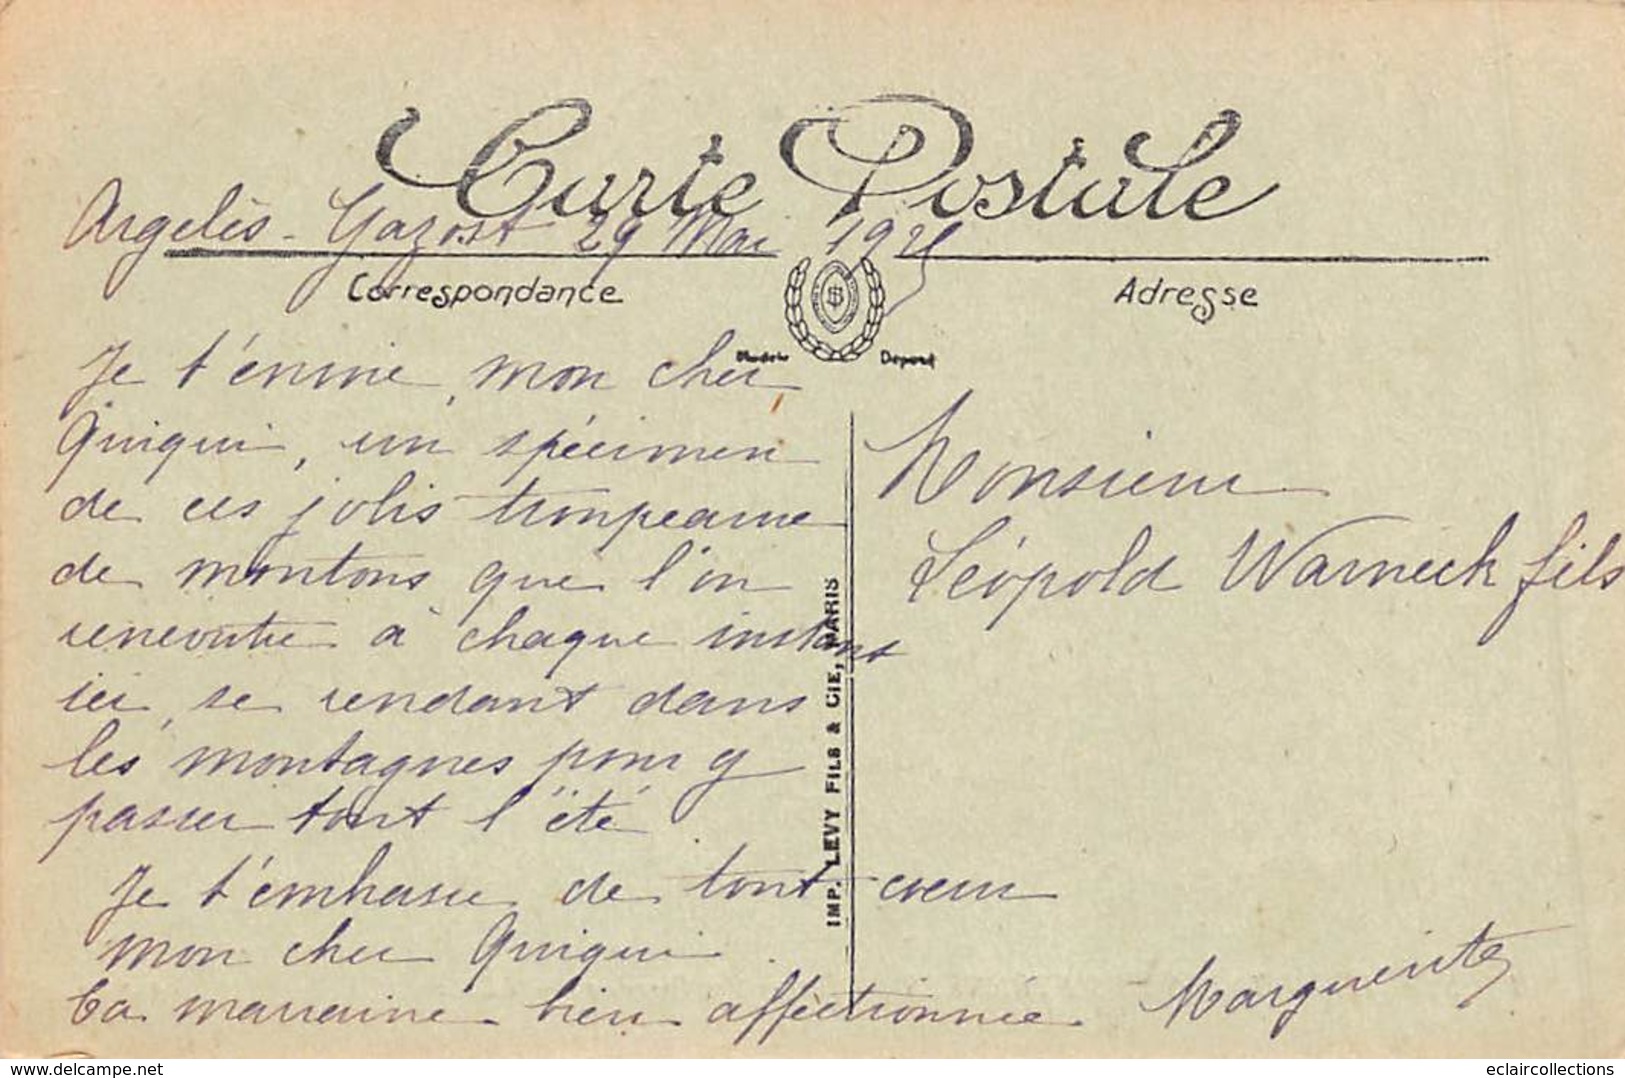 Carte Postale
Argelès-Gazost 29 Mai
Correspondance
Adresse
Modèle Déposé
Je t'envoie, mon cher
Quiqui, un spécimen
de ces jolis troupeaux
de moutons que l'on
rencontre à chaque instant
ici, se rendant dans
les montagnes pour y
passer tout l'été.
Je t'embrasse de tout coeur
mon cher Quiqui.
Ta marraine bien affectionnée
Marguerite
Monsieur
Léopold Warneck fils
IMP. LEVY FILS & CIE, PARIS
https://www.delcampe.net
eclaircollections